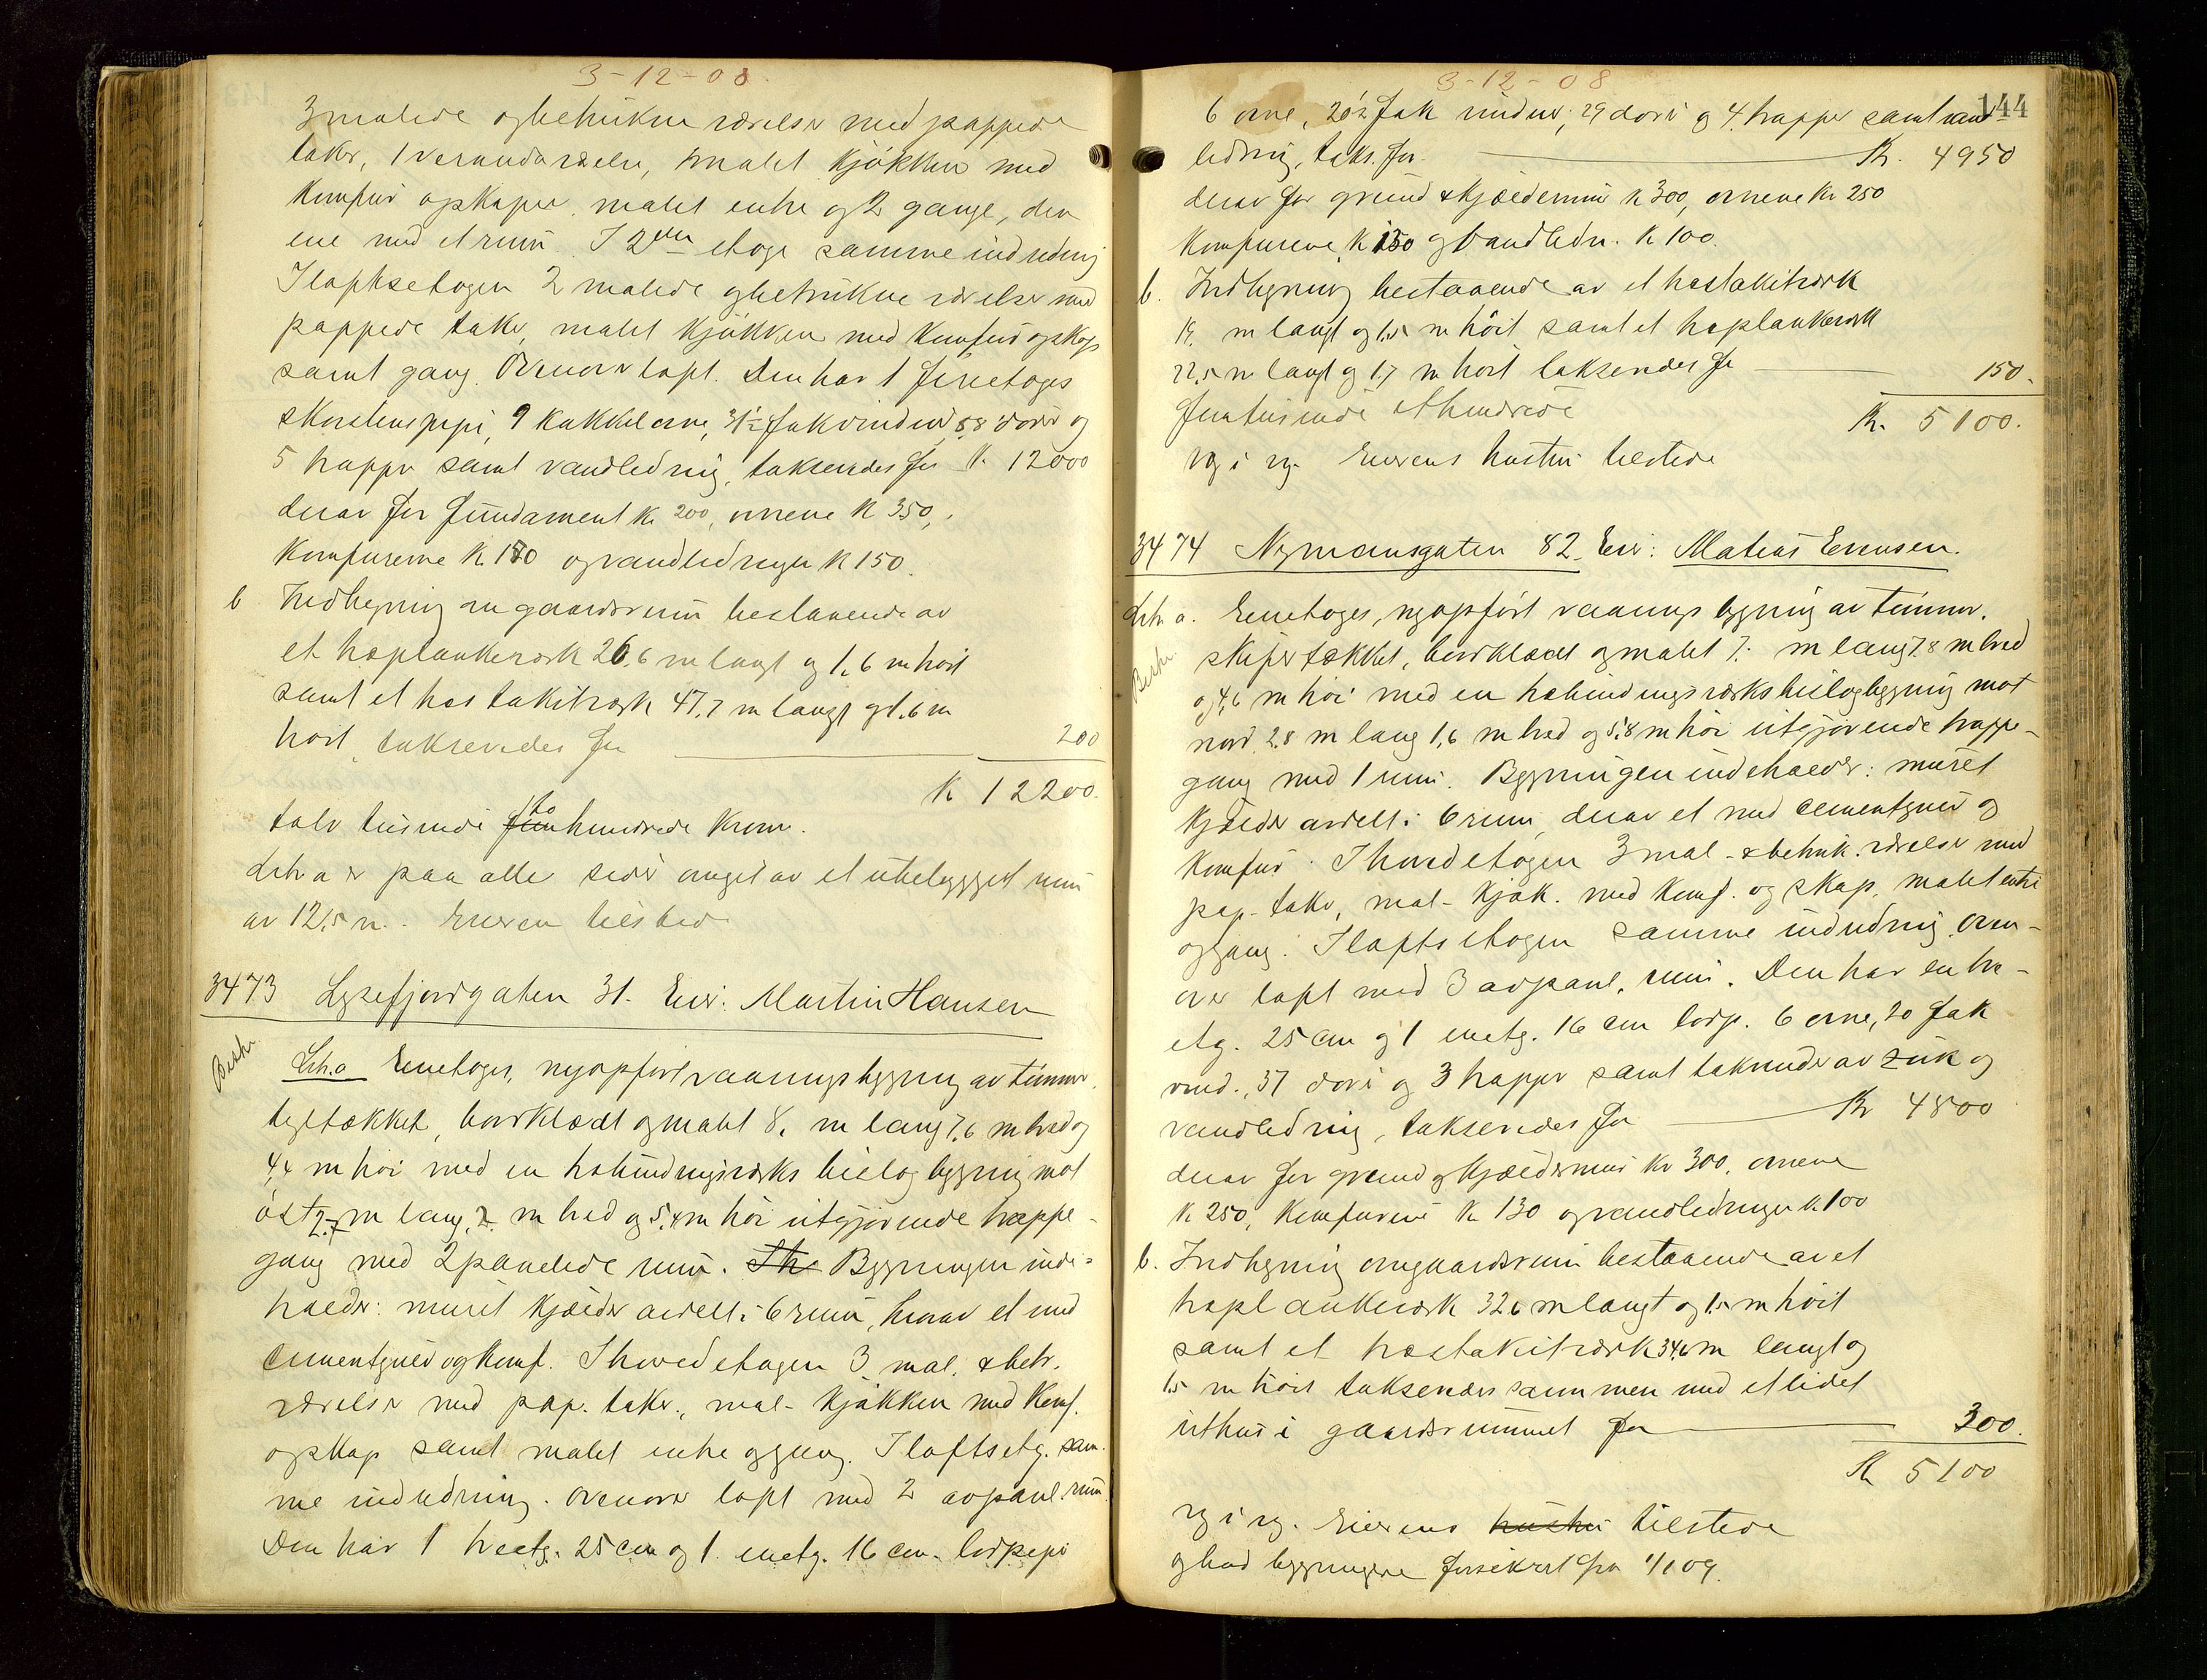 3-12-08
3 malede og betrukne værelser med pappede
taker, 1 verandaværelse, malet kjøkken med
komfur og skaper, malet entre og 2 gange, den
ene med et rum. I 2den etage samme indredning
I loftsetagen 2 malede og betrukne værelser med
pappede taker, malet kjøkken med komfur og skap
samt gang. Ovenover loft. Den har 1 fireetages
skorstenspipe, 9 kakkelovne, 31½ fak vinduer, 58 dører og
5 trapper samt vandledning, takseredes for K. 12000
derav for fundament Kr 200, ovnene K 350,
komfurerne K. 180 og vandledningen K 150.
b Indhegning om gaardsrum bestaaende av
et træplankeverk 26,6 m langt og 1,6 m høit
samt et træstakitverk 47,7 m langt og 1,6 m
høit, takseredes for 200
K 12200.
tolv tusinde fem to hundrede kroner.
Litr a er paa alle sider omgit av et ubebygget rum
av 12,5 m. Eieren tilstede
3473 Lysefjordgaten 31. Eier: Martin Hansen
Beskr
Litr. a Enetages, nyopført vaaningsbygning av tømmer,
teglt​ækket, bordklædt og malet 8, m lang 7,6 m bred og
4,4 m høi med en træbindingsverks tilbygning mot
øst 2,7 m lang, 2, m bred og 5,4 m høi utgjørende trappe-
gang med 2 panelede rum. I h Bygningen inde-
holder: muret kjælder avdelt i 6 rum, hvorav et med
cementgulv og komf. I hovedetagen 3 mal. & betr.
værelser med pap. taker, mal. kjøkken med komf.
og skap samt malet entre og gang. I loftsetg. sam-
me indredning. Ovenover loft med 2 avpanl. rum.
Den har 1 treetg. 25 cm og 1 enetg. 16 cm. lodpipe
3-12-08
144
6 ovne, 20½ fak vinduer, 29 dører og 4 trapper samt vand-
ledning, taks. for Kr. 4950
derav for grund & kjældermur K 300, ovnene Kr 250
komfurene K 130 og vandledn. K 100.
b. Indhegning bestaaende av et træstakitverk
19, m langt og 1,5 m høit samt et træplankeverk
22,5 m langt og 1,7 m høit takseredes for 150.
femtusinde ethundrede Kr. 5100.
Eierens hustru tilstede
3474 Nymansgaten 82. Eier: Matias Evensen.
Litr a. Enetages, nyopført vaaningsbygning av tømmer,
Beskr.
skifertækket, bordklædt og malet 7, m lang 7,8 m bred
og 4,6 m høi med en træbindingsverks tilbygning mot
nord 2,8 m lang 1,6 m bred og 5,8 m høi utgjørende trappe-
gang med 1 rum. Bygningen indeholder: muret
kjælder avdelt i 6 rum, derav et med cementgulv og
komfur. I hovedetagen 3 mal. & betruk. værelser med
pap. taker, mal. kjøk. med komf. og skap, malet entre
og gang. I loftsetagen samme indredning. Oven-
over loft med 3 avpanl. rum. Den har en tre-
etg. 25 cm og 1 enetg. 16 cm lodp. 6 ovne, 20 fak
vind., 37 dører og 3 trapper samt takrender av zink og
vandledning, takseredes for Kr 4800
derav for grund og kjældermur Kr 300, ovnene
K 250, komfurene K 130 og vandledningen K. 100
b. Indhegning om gaardsrum bestaaende av et
træplankeverk 32,6 m langt og 1,5 m høit
samt et træstakitverk 34,6 m langt og
1,5 m høit takseredes sammen med et lidet
uthus i gaardsrummet for 300.
K 5100
Eierens hustru tilstede
og bad bygningerne forsikret fra 1/1 09.